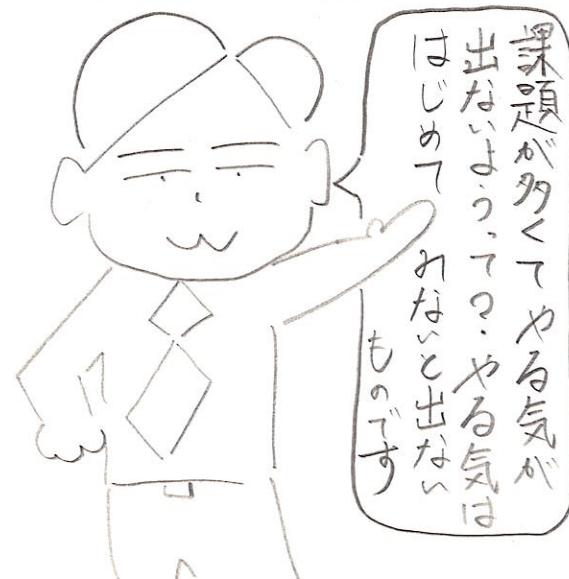 課題が多くてやる気が
出ないようって?・やる気は
はじめて みないと出ない
ものです